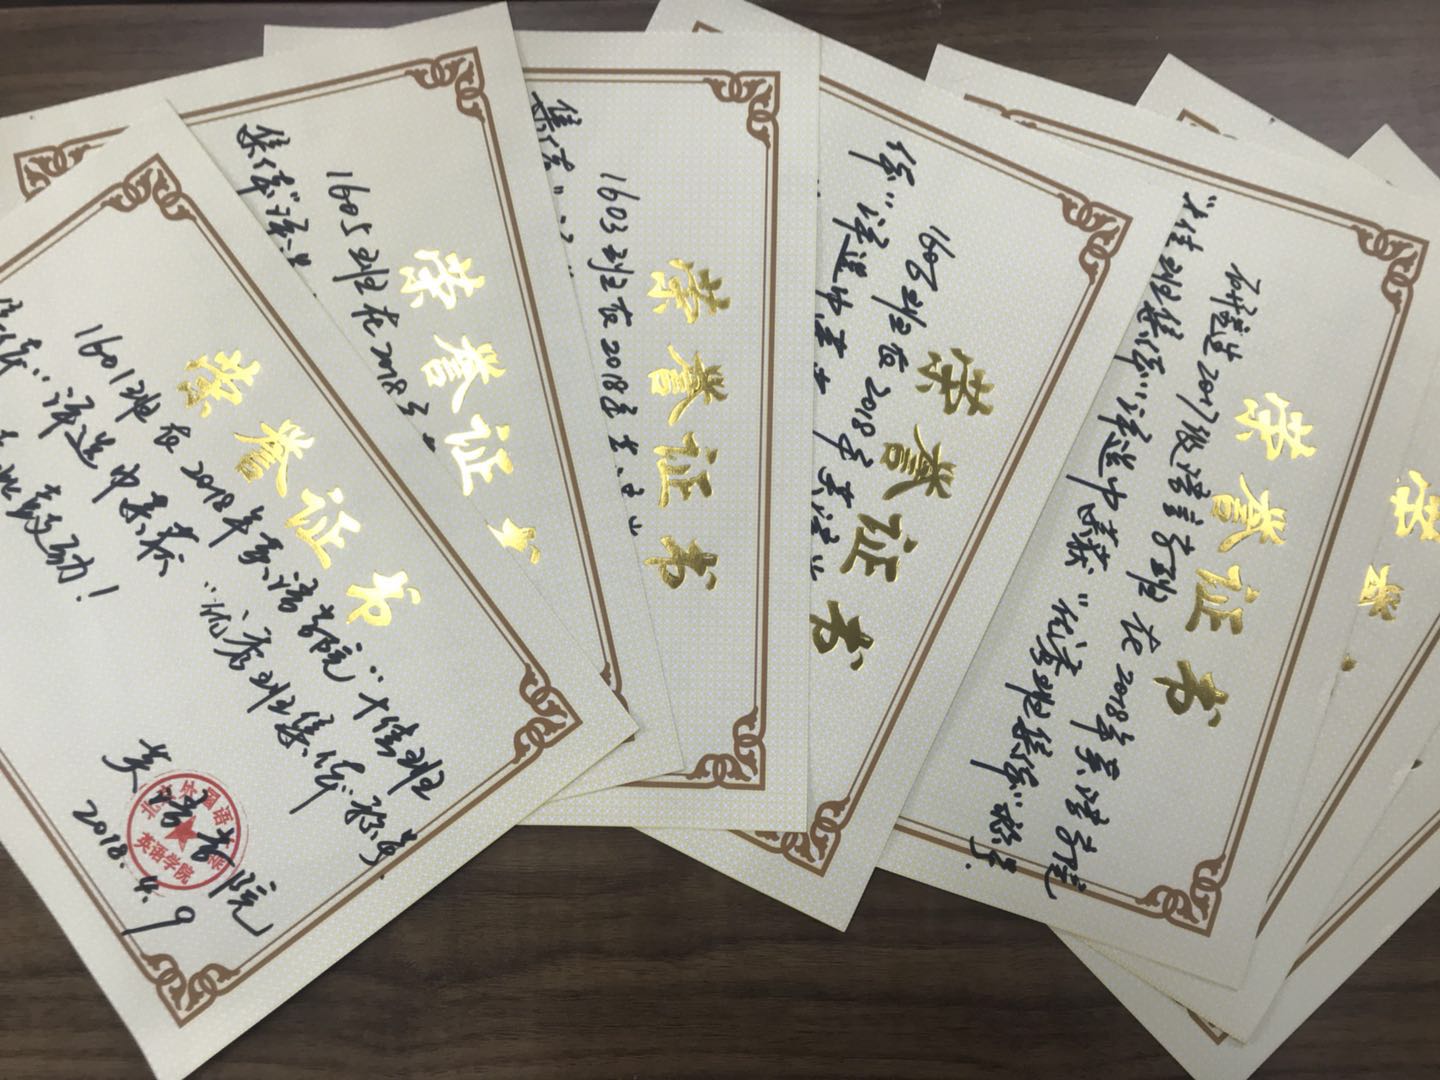 荣誉证书
1601班在2018年英语学院“十佳班
集体”评选中荣获“优秀班集体”称号.
特此鼓励！
英语学院
2018.4.9
英语学院
荣誉证
1605班在2018
集体”评
荣誉证书
1603班在2018
集体”
荣誉证书
1606班在2018年英语
体”评选中
荣誉证书
2017级语言班在2018年英语学院
“十佳班集体”评选中荣获“优秀班集体”称号.
荣